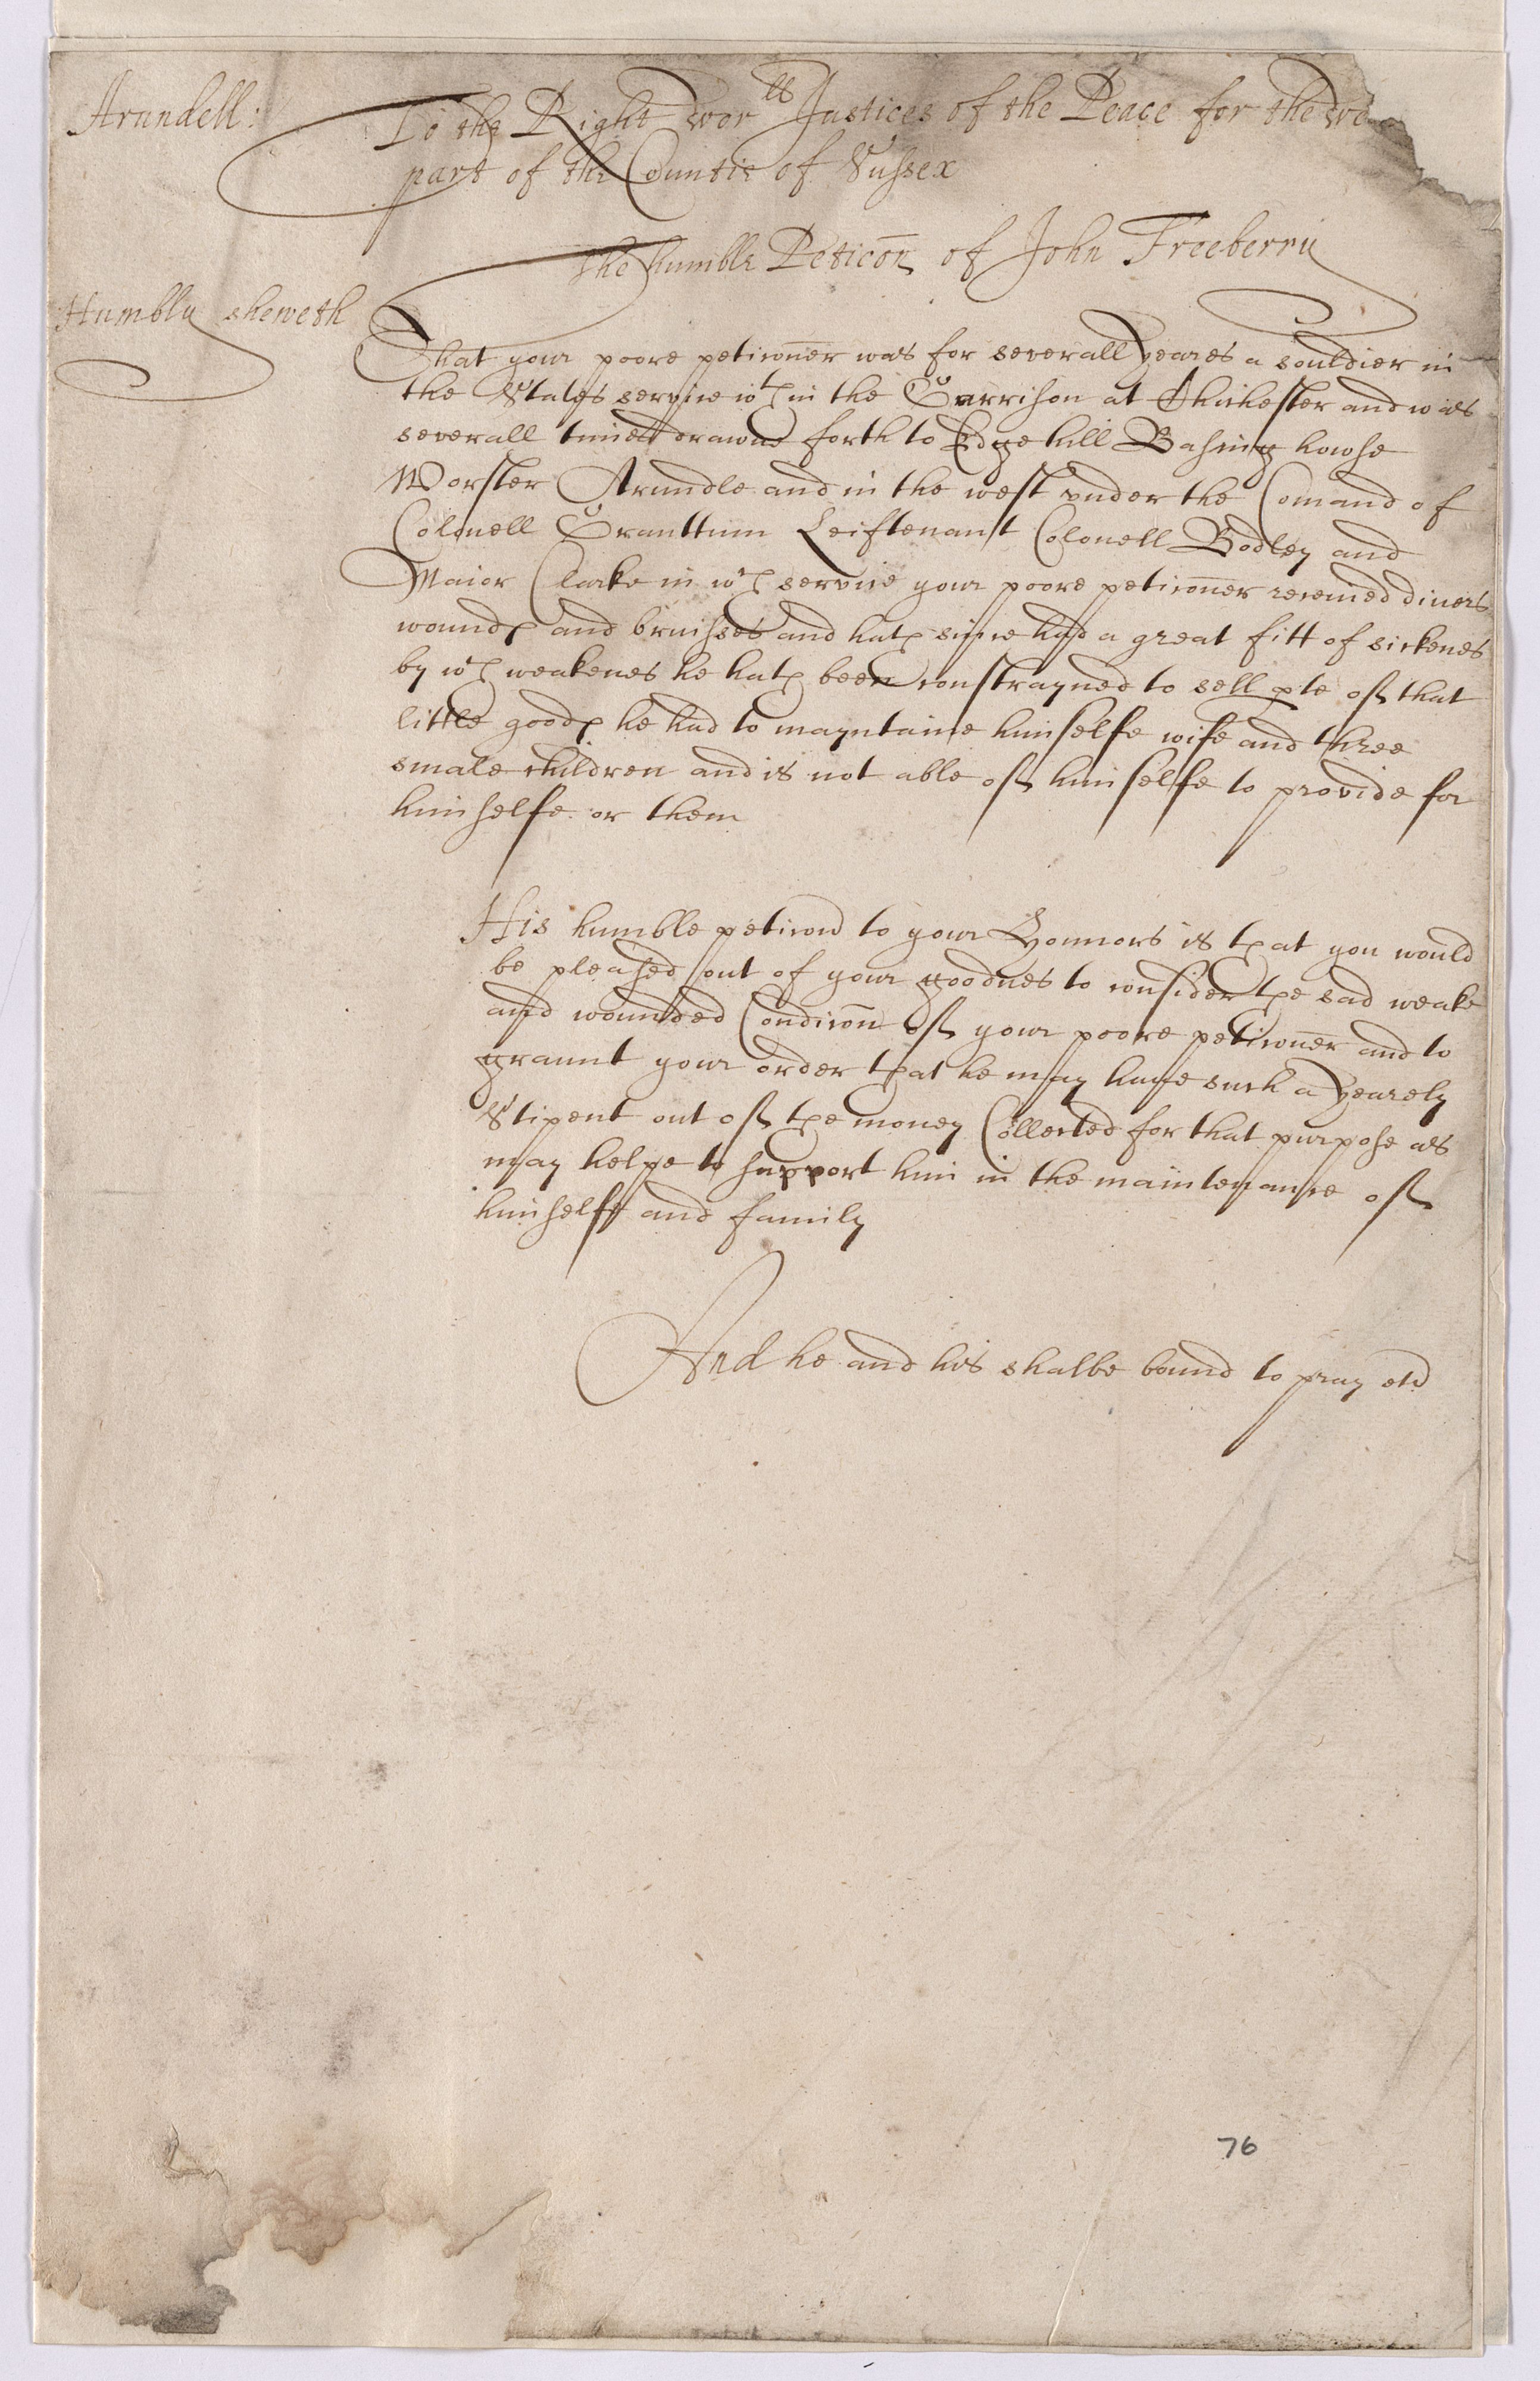 Arundell:
To the Right worlls Justices of the Peace for the we
part of the Countie of Sussex
The humble Peticōn of John Freeberry
Humbly sheweth
That your poore peticōner was for severall yeares a souldier in
the States service wth in the Garrison at Chichester and was
severall times drawne forth to Edge hill Basing howse
Worster Arundle and in the west vnder the Comand of
Colonell Granttum Leiftenant Colonell Bodley and
Maior Clarke in wch service your poore peticōner receiued diuers
woundes and bruisses and hath since had a great fitt of sicknes
by wch weakenes he hath been constrayned to sell pte of that
little goodes he had to mayntaine himselfe wife and three
smale children and is not able of himselfe to provide for
himselfe or them
His humble peticon to your Honnors is that you would
be pleased out of your goodnes to consider the sad weake
and wounded Condicōn of your poore peticōner and to
graunt your order that he may haue such a yearely
Stipent out of the money Collected for that purpose as
may helpe to support him in the maintenance of
himselfe and family
And he and his shalbe bound to pray etc
76